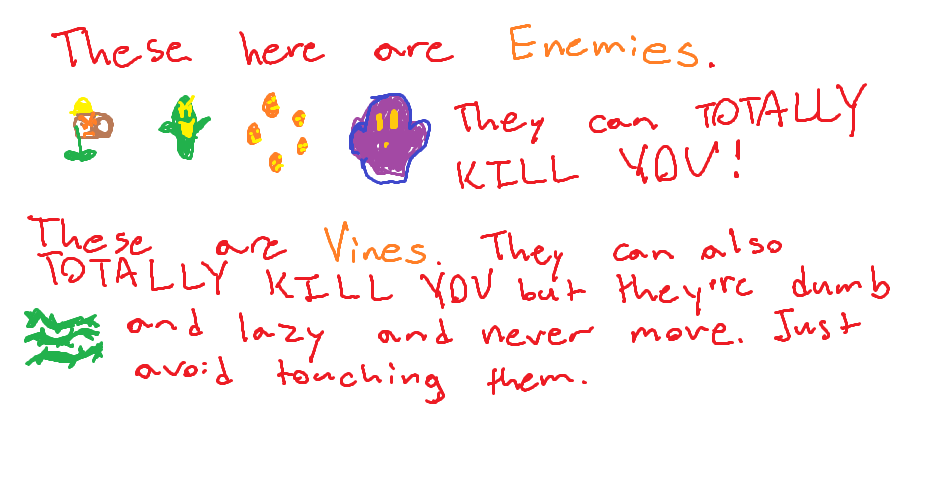 These here are Enemies.
They can TOTALLY
KILL YOU!
These are Vines. They can also
TOTALLY KILL YOU but they're dumb
and lazy and never move. Just
avoid touching them.